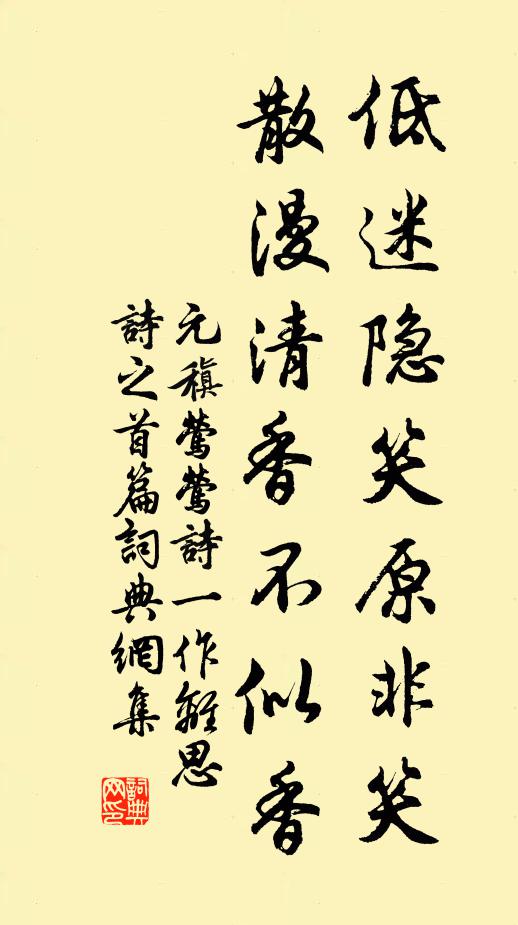 低迷隐笑原非笑
散漫清香不似香
元稹鶯鶯詩一作離思
詩之首篇詞典網集
詞典
网印